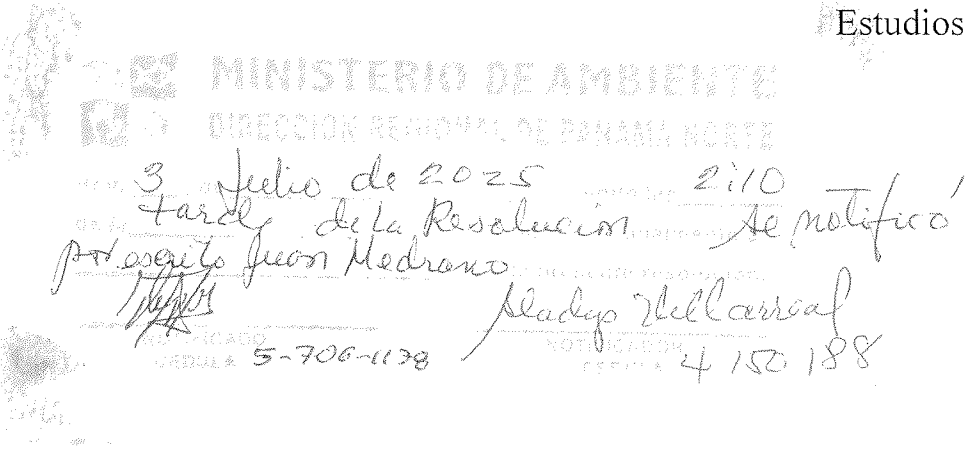 Estudios
MINISTERIO DE AMBIENTE
DIRECCION REGIONAL DE PANAMA NORTE
3 Julio de 2025 2:10
tarde de la Resolución se notificó
por escrito Juan Medrano
Gladys Villarreal
NOTIFICADO NOTIFICADOR
CEDULA 5-706-1178 CEDULA 4 150 188